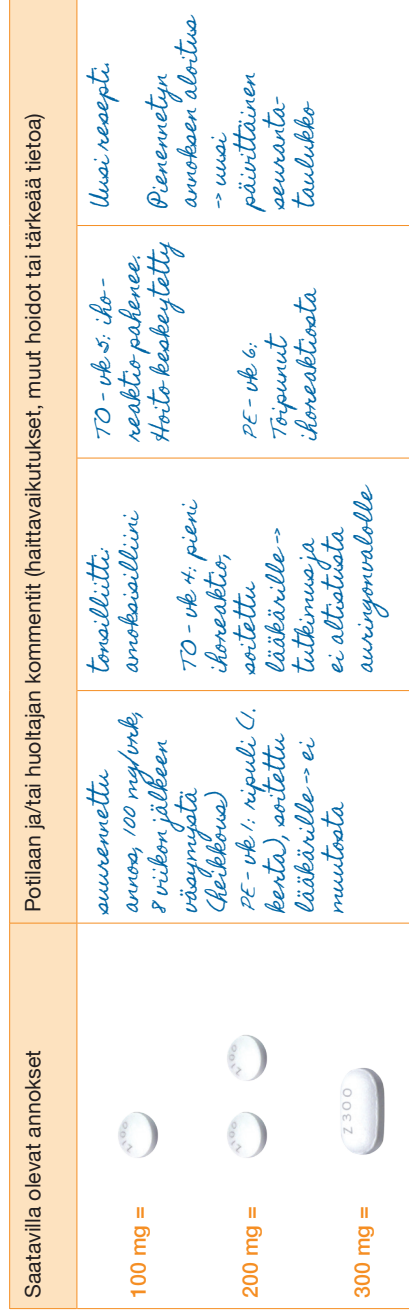 Saatavilla olevat annokset
100 mg =
Z100
200 mg =
Z100
Z100
300 mg =
Z300
Potilaan ja/tai huoltajan kommentit (haittavaikutukset, muut hoidot tai tärkeää tietoa)
suurennettu
annos, 100 mg/vrk,
8 viikon jälkeen
väsymystä
(heikkous)
PE - vk 1: ripuli (1.
kerta), soitettu
lääkärille -> ei
muutosta
tonsilliitti:
amoksisilliini
TO - vk 4: pieni
ihoreaktio,
soitettu
lääkärille ->
tutkimus ja
ei altistusta
auringonvalolle
TO - vk 5: iho-
reaktio pahenee.
Hoito keskeytetty
PE - vk 6:
Toipunut
ihoreaktiosta
Uusi resepti.
Pienennetyn
annoksen aloitus
-> uusi
päivittäinen
seuranta-
taulukko